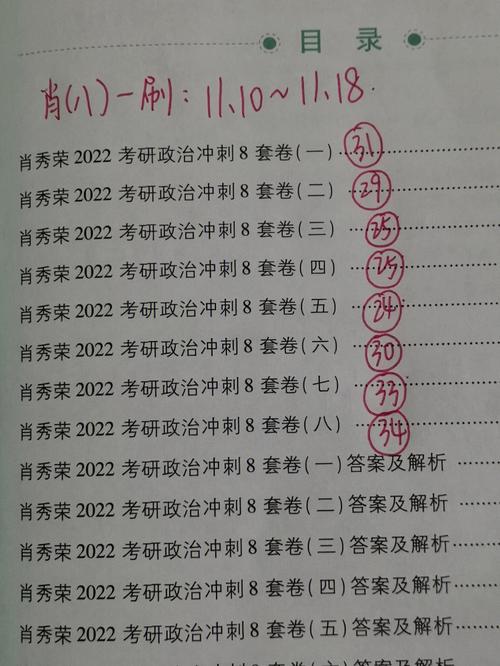 目 录
肖(八)一刷：11.10~11.18.
肖秀荣 2022 考研政治冲刺 8 套卷(一) 31
肖秀荣 2022 考研政治冲刺 8 套卷(二) 29
肖秀荣 2022 考研政治冲刺 8 套卷(三) 25
肖秀荣 2022 考研政治冲刺 8 套卷(四) 25
肖秀荣 2022 考研政治冲刺 8 套卷(五) 24
肖秀荣 2022 考研政治冲刺 8 套卷(六) 30
肖秀荣 2022 考研政治冲刺 8 套卷(七) 33
肖秀荣 2022 考研政治冲刺 8 套卷(八) 34
肖秀荣 2022 考研政治冲刺 8 套卷(一)答案及解析
肖秀荣 2022 考研政治冲刺 8 套卷(二)答案及解析
肖秀荣 2022 考研政治冲刺 8 套卷(三)答案及解析
肖秀荣 2022 考研政治冲刺 8 套卷(四)答案及解析
肖秀荣 2022 考研政治冲刺 8 套卷(五)答案及解析
肖秀荣 2022 考研政治冲刺 8 套卷(六)答案及解析